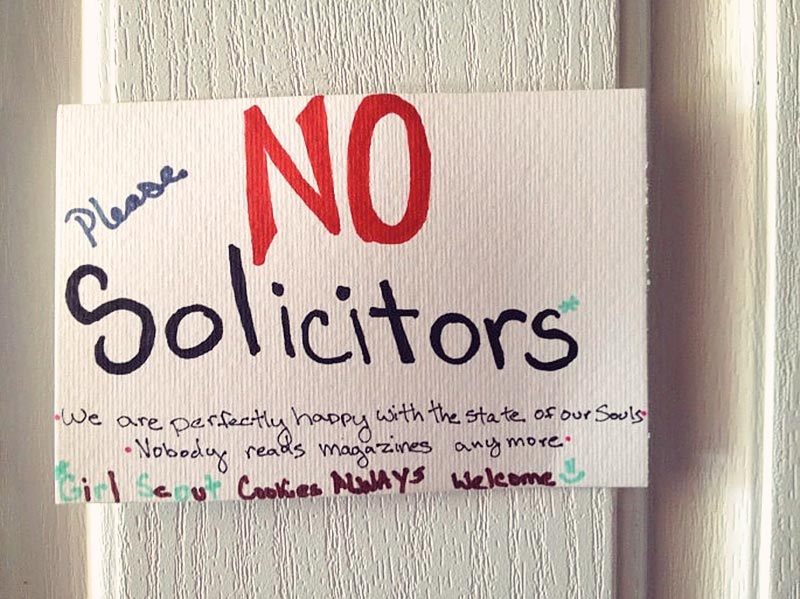 Please NO
Solicitors*
•We are perfectly happy with the state of our Souls•
•Nobody reads magazines anymore•
*Girl Scout Cookies ALWAYS Welcome